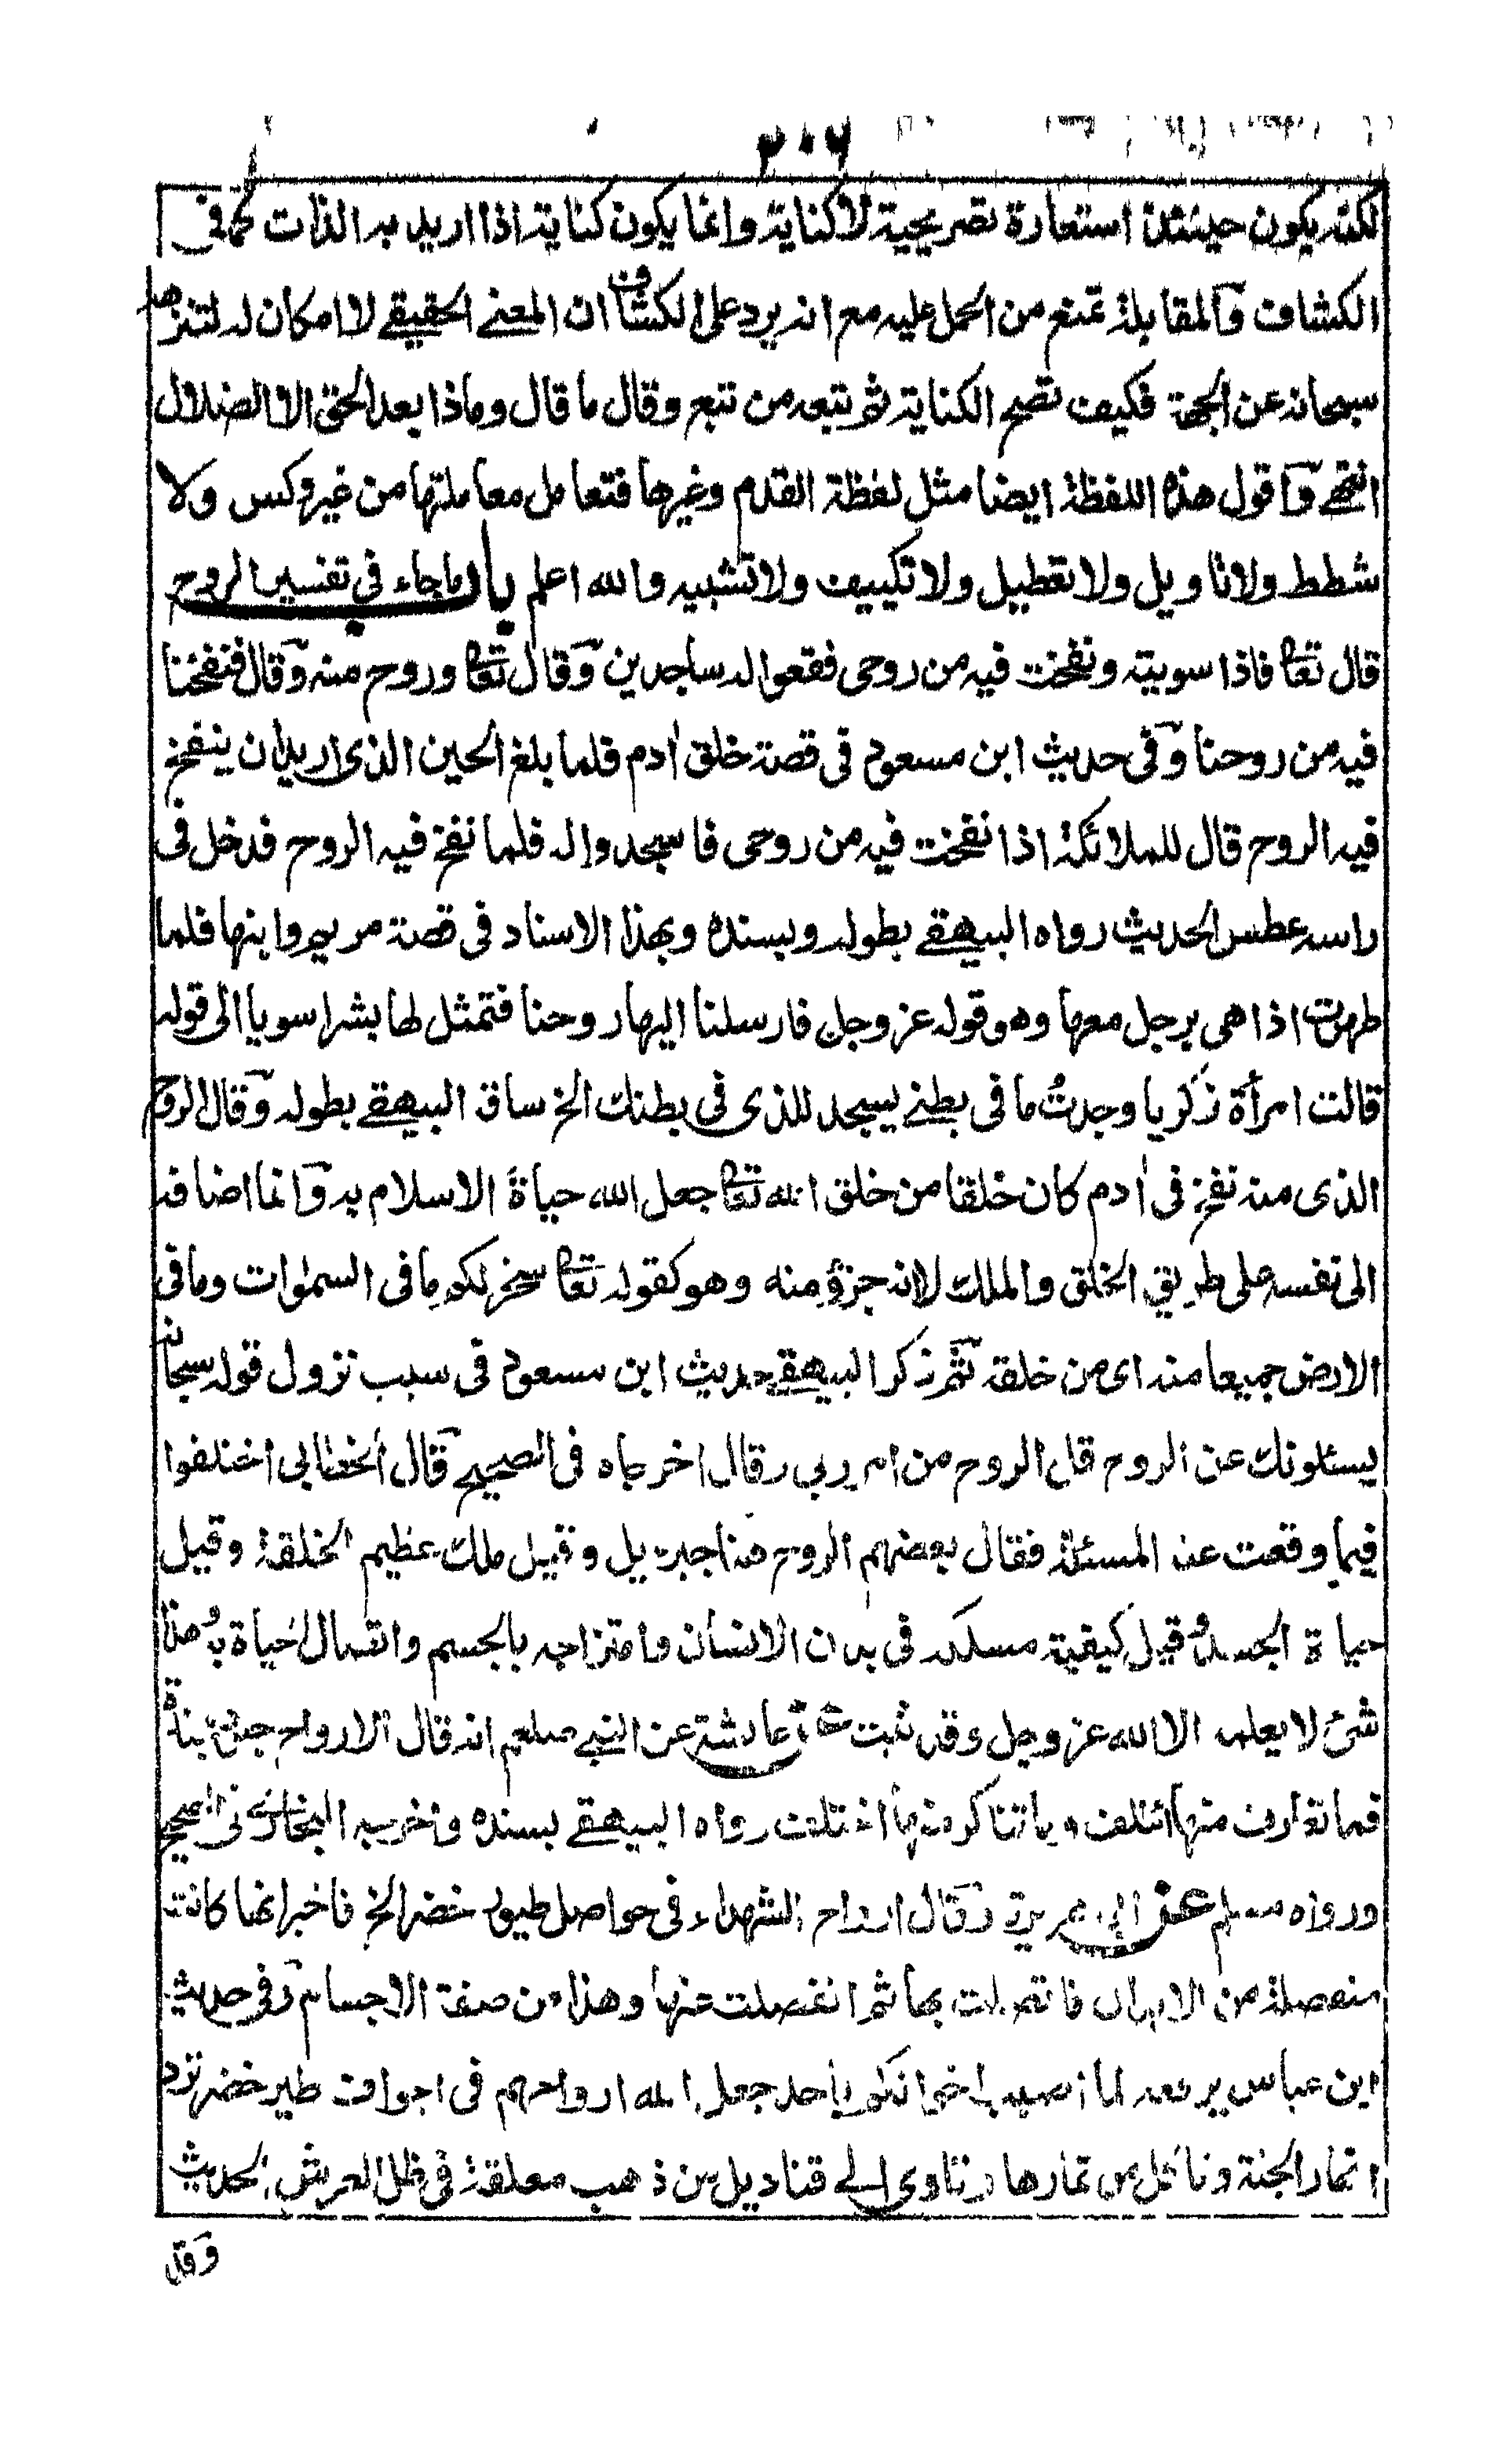 ٢٠٦
لكنه يكون حينئذ استعارة تصريحية لا كناية وانما يكون كناية اذا اريد به الذات كما فى
الكشاف والمقابلة تمنع من الحمل عليه مع انه يرد على الكشاف ان المعنى الحقيقے لا امكان له لتنزهه
سبحانه عن الجهة فكيف تصح الكناية ثم تبعه من تبع وقال ما قال وماذا بعد الحق الا الضلال
انتهے واقول هذه اللفظة ايضا مثل لفظة القدم وغيرها فتعامل معاملتها من غير وكس ولا
شطط ولا تاويل ولا تعطيل ولا تكييف ولا تشبيه والله اعلم باب ما جاء فى تفسير الروح
قال تعا فاذا سويته ونفخت فيه من روحى فقعوا له ساجدين وقال تعا وروح منه وقال فنفخنا
فيه من روحنا وفى حديث ابن مسعود فى قصة خلق اٰدم فلما بلغ الحين الذى اريد ان ينفخ
فيه الروح قال للملائكة اذا نفخت فيه من روحى فاسجدوا له فلما نفخ فيه الروح فدخل فى
راسه عطس الحديث رواه البيهقے بطوله وبسنده وبهذا الاسناد فى قصة مريم وابنها فلما
طهرت اذا هى برجل معها وهو قوله عز وجل فارسلنا اليها روحنا فتمثل لها بشرا سويا الى قوله
قالت امرأة زكريا وجدتُ ما فى بطنے يسجد للذى فى بطنك الخ ساق البيهقے بطوله وقال الروح
الذى منه نفخ فى اٰدم كان خلقا من خلق الله تعا جعل الله حياة الاسلام به وانما اضافه
الى نفسه على طريق الخلق والملك لا انه جزؤ منه وهو كقوله تعا سخر لكم ما فى السمٰوات وما فى
الارض جميعا منه اى من خلقه ثم ذكر البيهقے حديث ابن مسعود فى سبب نزول قوله سبحانه
يسئلونك عن الروح قل الروح من امر ربى وقال اخرجاه فى الصحيح قال الخطابى اختلفوا
فيما وقعت عنه المسئلة فقال بعضهم الروح هنا جبريل وقيل ملك عظيم الخلقة وقيل
حياة الجسد وقيل كيفية مسلكه فى بدن الانسان وامتزاجه بالجسم واتصال الحياة به وهذا
شئ لا يعلمه الا الله عز وجل وقد ثبت عن عائشة عن النبے صلعم انه قال الارواح جنود مجندة
فما تعارف منها ائتلف وما تناكر منها اختلف رواه البيهقے بسنده واخرجه البخارى فى الصحيح
ورواه مسلم عن ابى هريرة وقال ارواح الشهداء فى حواصل طيور خضر الخ فاخبر انها كانت
منفصلة من الابدان فاتصلت بها ثم انفصلت عنها وهذا من صفة الاجسام وفى حديث
ابن عباس يرفعه لما اصيب اخوانكم باحد جعل الله ارواحهم فى اجواف طير خضر ترد
انهار الجنة وتاكل من ثمارها وتاوى الے قناديل من ذهب معلقة فى ظل العرش الحديث